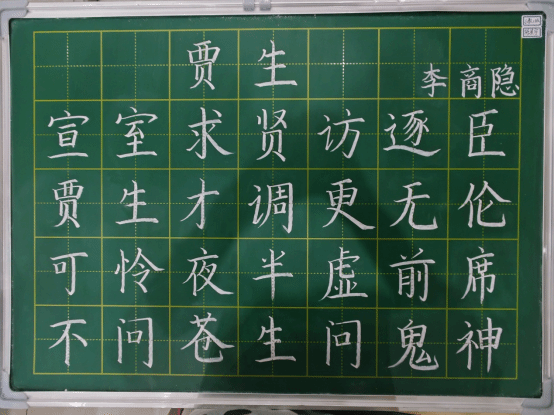 贾生
李商隐
宣室求贤访逐臣
贾生才调更无伦
可怜夜半虚前席
不问苍生问鬼神